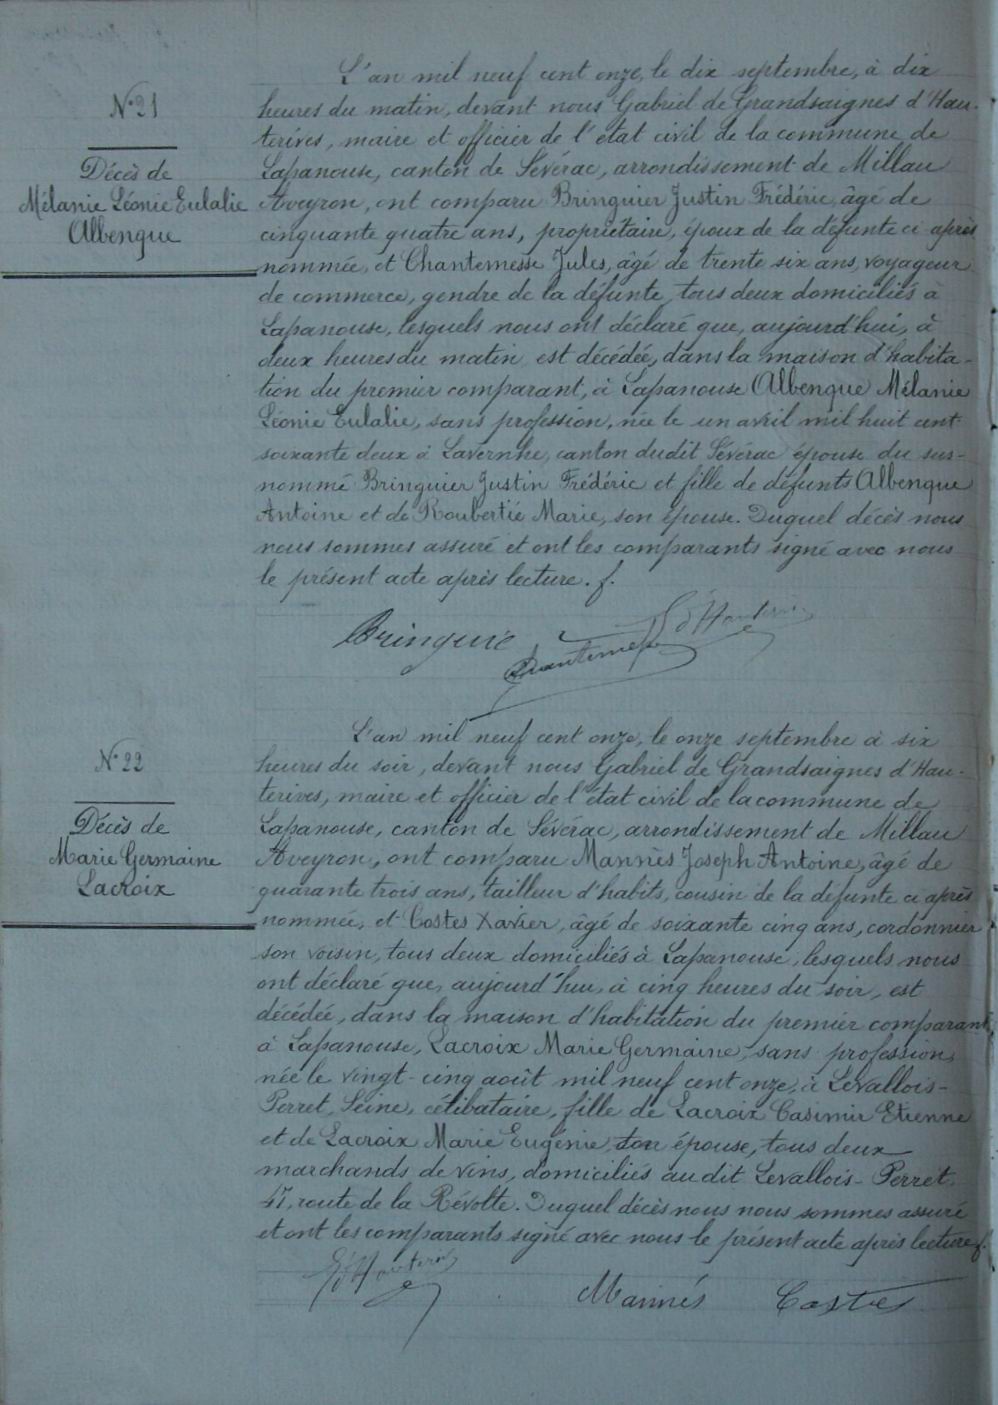 N° 21
Décès de
Mélanie Léonie Eulalie
Albenque
L'an mil neuf cent onze, le dix septembre, à dix
heures du matin, devant nous Gabriel de Grandsaignes d'Hau-
terives, maire et officier de l'état civil de la commune de
Lapanouse, canton de Sévérac, arrondissement de Millau
Aveyron, ont comparu Bringuier Justin Frédéric, âgé de
cinquante quatre ans, propriétaire, époux de la défunte ci après
nommée, et Chantemesse Jules, âgé de trente six ans, voyageur
de commerce, gendre de la défunte, tous deux domiciliés à
Lapanouse, lesquels nous ont déclaré que, aujourd'hui, à
deux heures du matin est décédée, dans la maison d'habita-
tion du premier comparant, à Lapanouse Albenque Mélanie
Léonie Eulalie, sans profession, née le un avril mil huit cent
soixante deux à Lavernhe, canton dudit Sévérac épouse du sus-
nommé Bringuier Justin Frédéric et fille de défunts Albenque
Antoine et de Roubertie Marie, son épouse. Duquel décès nous
nous sommes assuré et ont les comparants signé avec nous
le présent acte après lecture. f.
Bringuie
Chantemesse
G d'Hauterives
N° 22
Décès de
Marie Germaine
Lacroix
L'an mil neuf cent onze, le onze septembre à six
heures du soir, devant nous Gabriel de Grandsaignes d'Hau-
terives, maire et officier de l'état civil de la commune de
Lapanouse, canton de Sévérac, arrondissement de Millau
Aveyron, ont comparu Mannès Joseph Antoine, âgé de
quarante trois ans, tailleur d'habits, cousin de la défunte ci après
nommée, et Costes Xavier, âgé de soixante cinq ans, cordonnier
son voisin, tous deux domiciliés à Lapanouse, lesquels nous
ont déclaré que, aujourd'hui, à cinq heures du soir, est
décédée, dans la maison d'habitation du premier comparant,
à Lapanouse, Lacroix Marie Germaine, sans profession,
née le vingt-cinq août mil neuf cent onze, à Levallois-
Perret, Seine, célibataire, fille de Lacroix Casimir Etienne
et de Lacroix Marie Eugénie, son épouse, tous deux
marchands de vins, domiciliés audit Levallois-Perret,
47, route de la Révolte. Duquel décès nous nous sommes assuré
et ont les comparants signé avec nous le présent acte après lecture f.
G d'Hauterives
Mannés
Costes